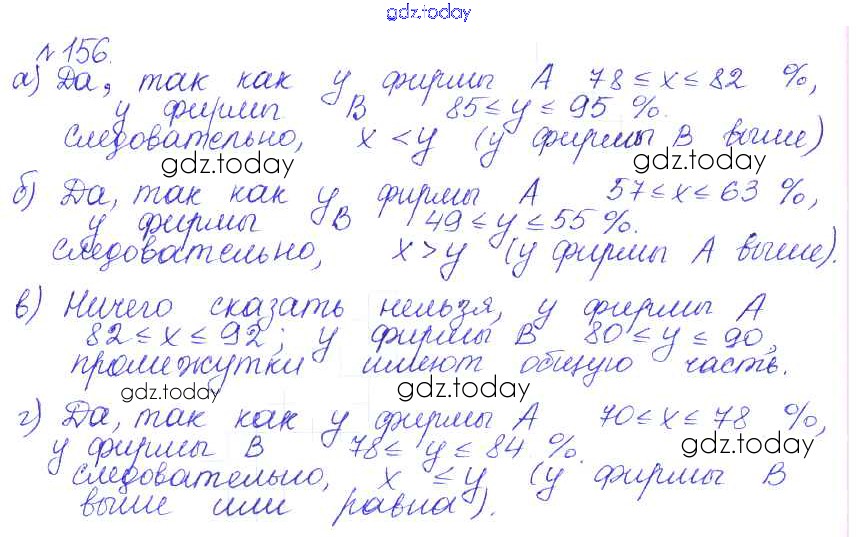 gdz.today
№156.
а) Да, так как у фирмы А 78 ≤ х ≤ 82 %,
у фирмы В 85 ≤ у ≤ 95 %.
следовательно, х < у (у фирмы В выше)
gdz.today gdz.today
б) Да, так как у фирмы А 57 ≤ х ≤ 63 %,
у фирмы В 49 ≤ у ≤ 55 %.
gdz.today gdz.today
следовательно, х > у (у фирмы А выше).
в) Ничего сказать нельзя, у фирмы А
82 ≤ х ≤ 92; у фирмы В 80 ≤ у ≤ 90,
промежутки имеют общую часть.
gdz.today gdz.today
г) Да, так как у фирмы А 70 ≤ х ≤ 78 %,
у фирмы В 78 ≤ у ≤ 84 %.
gdz.today
следовательно, х ≤ у (у фирмы В
выше или равна).